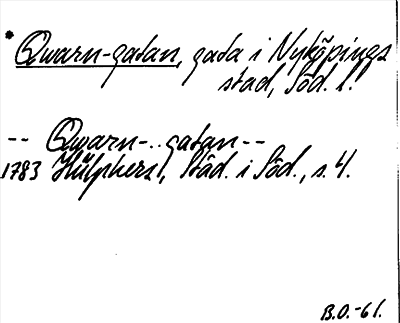 * Qwarn-gatan, gata i Nyköpings
stad, Söd. l.
-- Qwarn-..gatan--
1783 Hülphers, Städ. i Söd., s. 4.
B.O.-61.